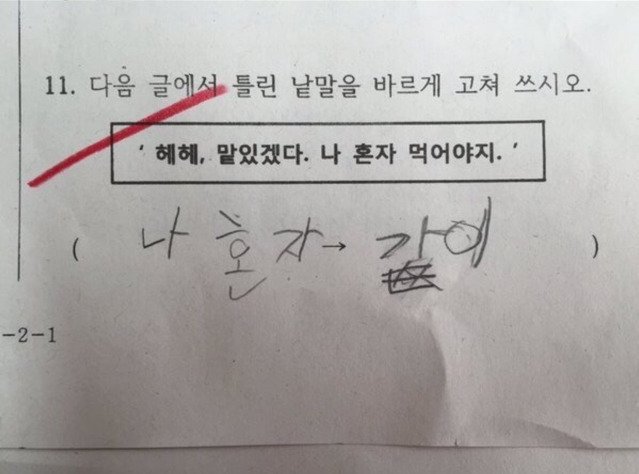 11. 다음 글에서 틀린 낱말을 바르게 고쳐 쓰시오.
' 헤헤, 맡있겠다. 나 혼자 먹어야지. '
( 나 혼자→ 가이 )
-2-1